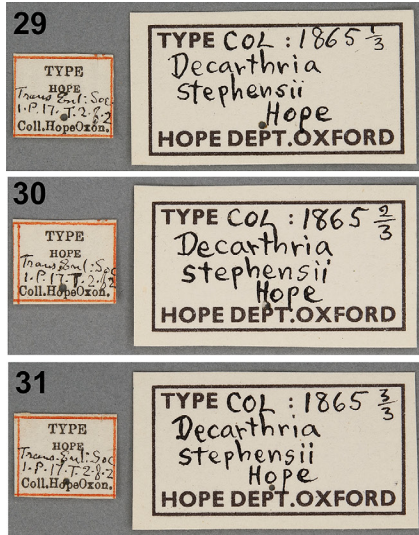 29
TYPE
HOPE
Trans. Ent: Soc
1. P. 17. T. 2. f. 2
Coll.HopeOxon.
TYPE COL : 1865 1/3
Decarthria
stephensii
Hope
HOPE DEPT.OXFORD
30
TYPE
HOPE
Trans. Ent: Soc
1. P. 17. T. 2. f. 2
Coll.HopeOxon.
TYPE COL : 1865 2/3
Decarthria
stephensii
Hope
HOPE DEPT.OXFORD
31
TYPE
HOPE
Trans. Ent: Soc
1. P. 17. T. 2. f. 2
Coll.HopeOxon.
TYPE COL : 1865 3/3
Decarthria
stephensii
Hope
HOPE DEPT.OXFORD